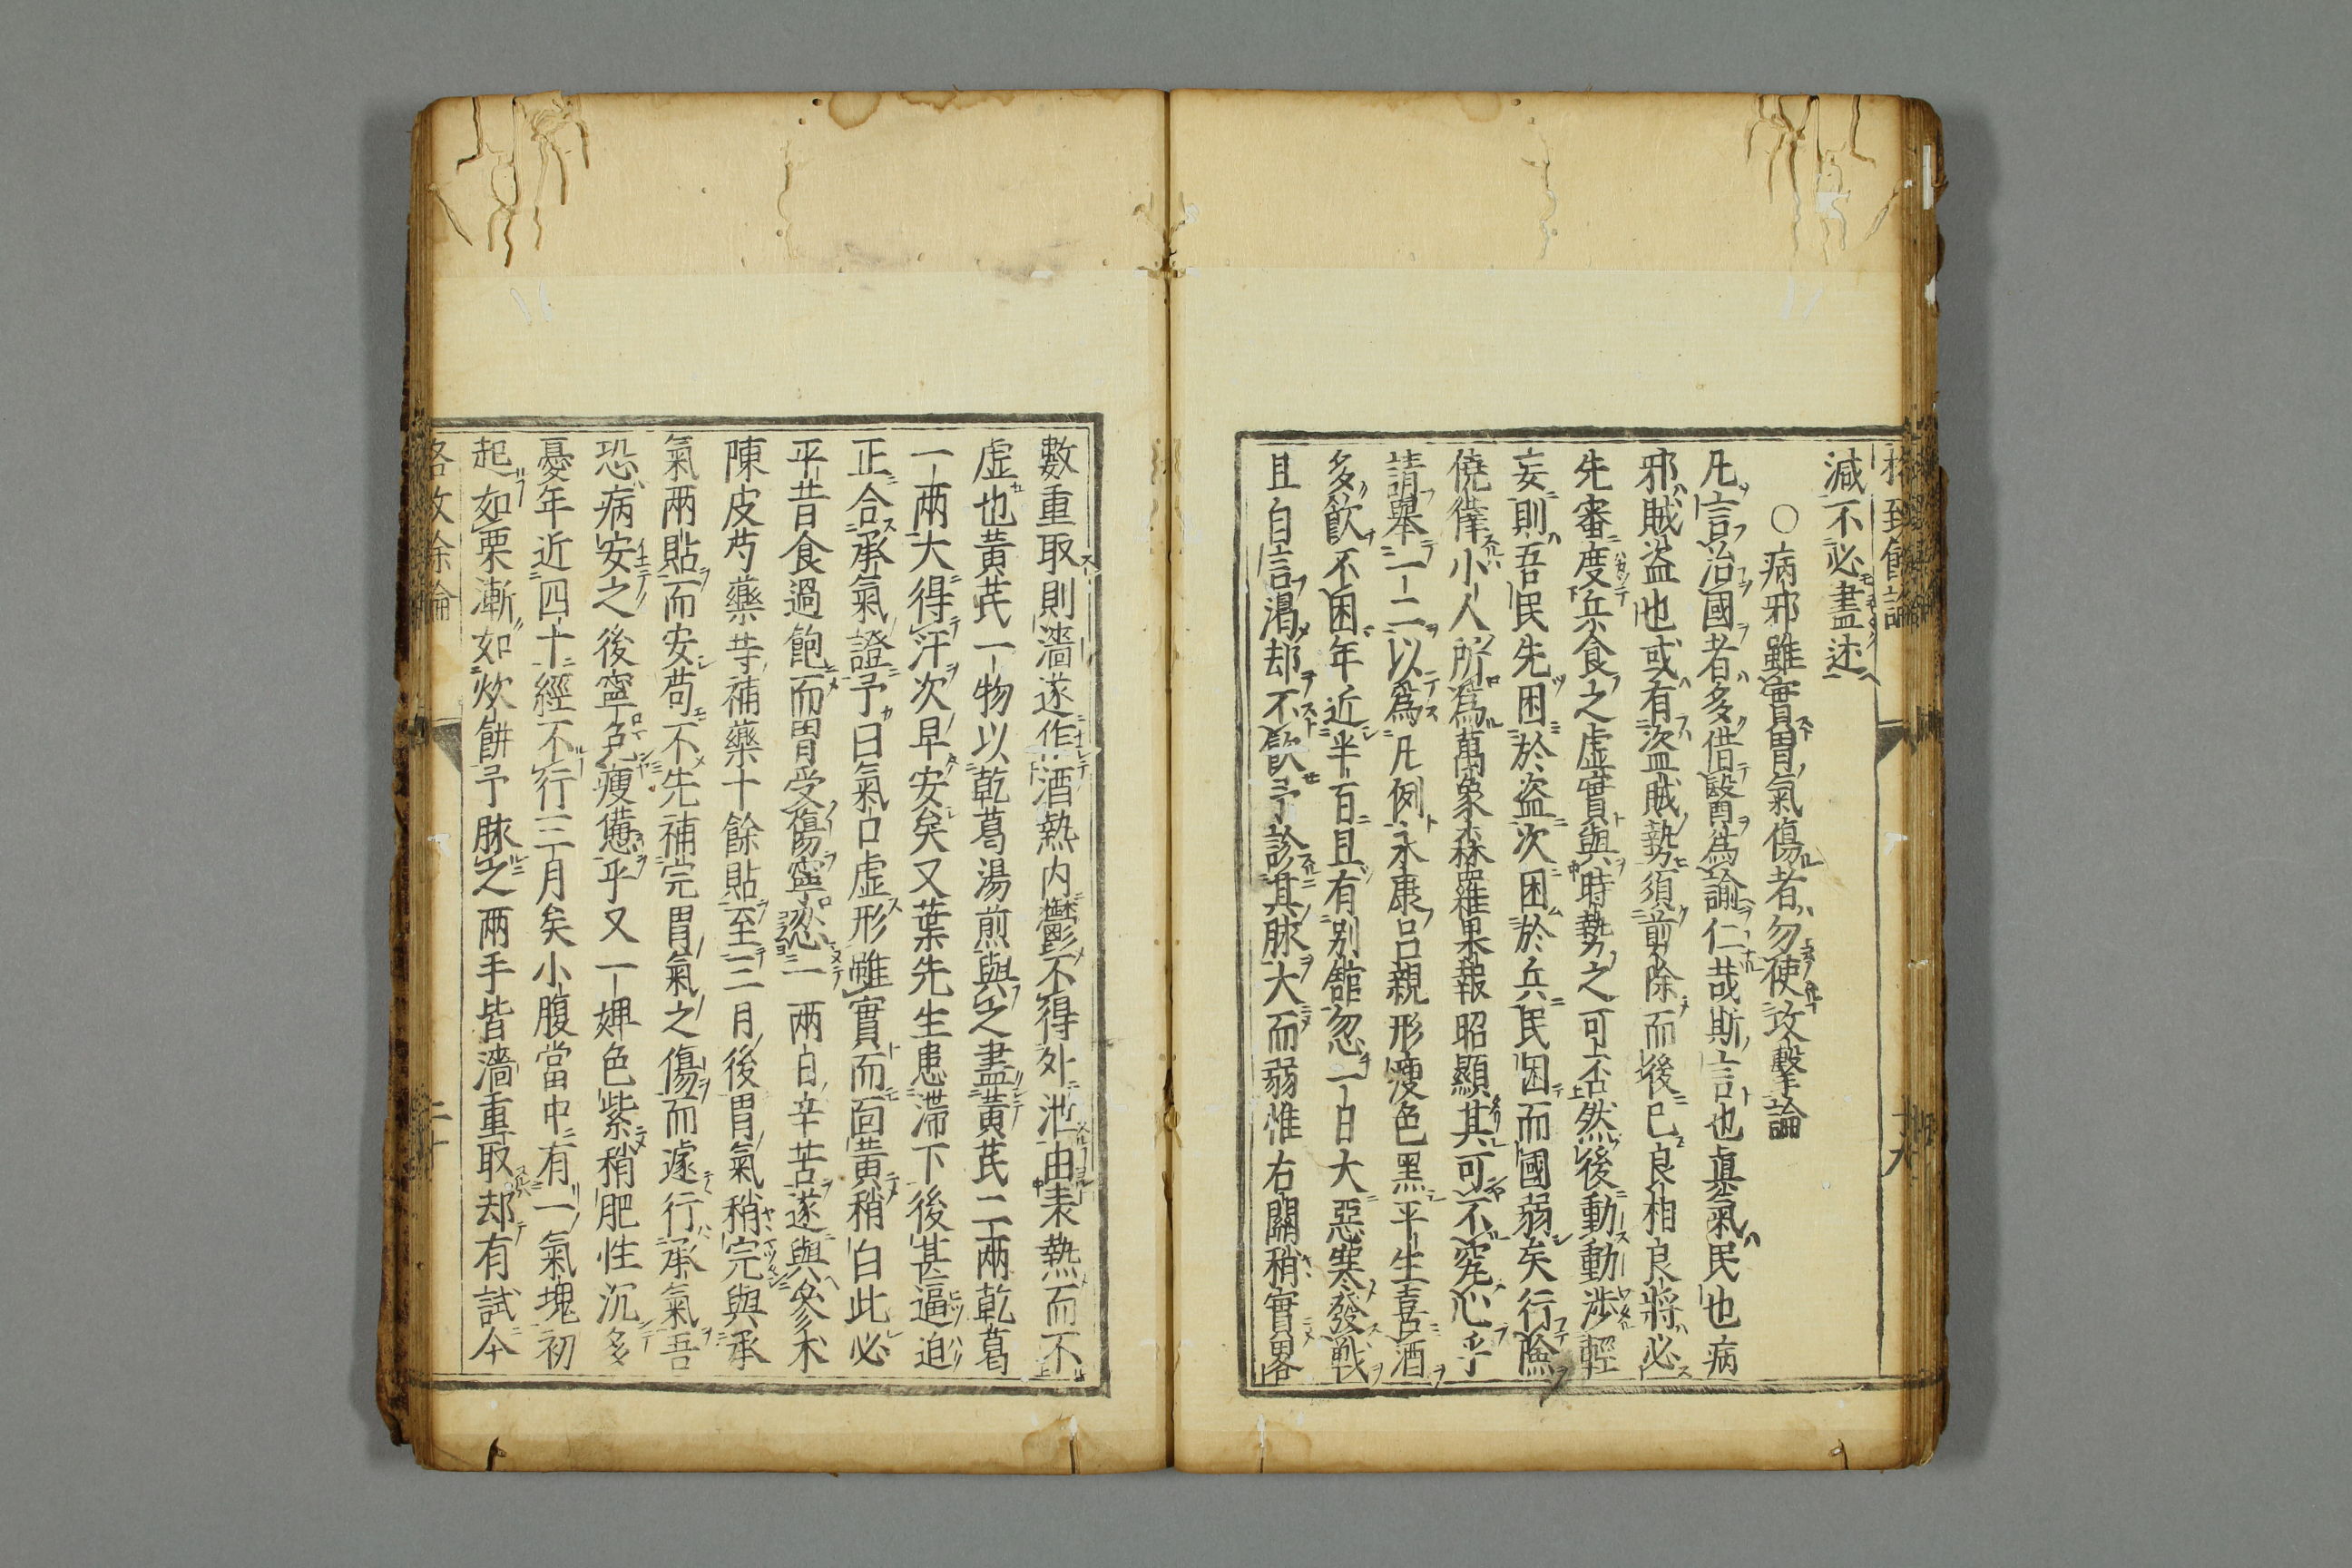 減不必盡述
○病邪雖實胃氣傷者勿使攻擊論
凡言治國者多借醫爲諭仁哉斯言也眞氣民也病
邪賊盗也或有盗賊勢須剪除而後已良相良將必
先審度兵食之虛實與時勢之可否然後動動渉輕
妄則吾民先困於盗次困於兵民困而國弱矣行險
僥倖小人所爲萬象森羅果報昭顯其可不究心乎
請舉一二以爲凡例永康呂親形瘦色黑平生喜酒
多飮不困年近半百且有別舘忽一日大惡寒發戰
且自言渴却不飮予診其脉大而弱惟右關稍實畧
數重取則濇遂作酒熱内鬱不得外泄由表熱而不
虛也黃芪一物以乾葛湯煎與之盡黃芪二兩乾葛
一兩大得汗次早安矣又葉先生患滯下後甚逼迫
正合承氣證予曰氣口虛形雖實而面黃稍白此必
平昔食過飽而胃受傷寧忍一兩日辛苦遂與參术
陳皮芍藥等補藥十餘貼至三月後胃氣稍完與承
氣兩貼而安苟不先補完胃氣之傷而遽行承氣吾
恐病安之後寧免瘦憊乎又一婢色紫稍肥性沉多
憂年近四十經不行三月矣小腹當中有一氣塊初
起如栗漸如炊餅予脉之兩手皆濇重取却有試令
格致餘論
二十